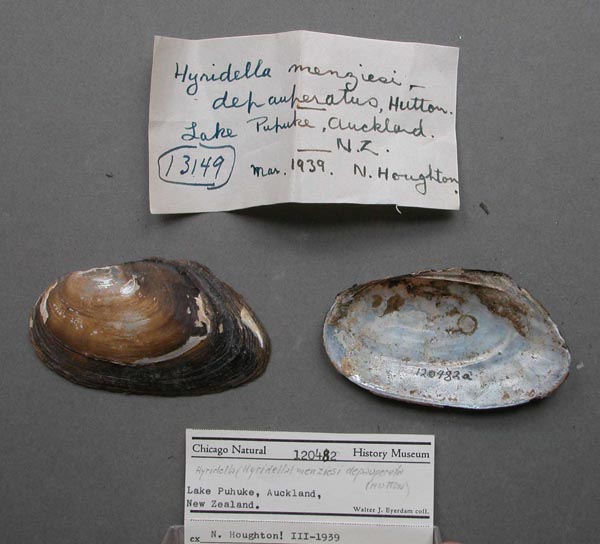 Hyridella menziesi -
depauperatus, Hutton.
Lake Pupuke, Auckland.
N.Z.
13149
Mar. 1939. N. Houghton
120482a
Chicago Natural 120482 History Museum
Hyridella (Hyridella) menziesi depauperata
(HUTTON)
Lake Puhuke, Auckland,
New Zealand.
Walter J. Eyerdam coll.
ex N. Houghton! III-1939